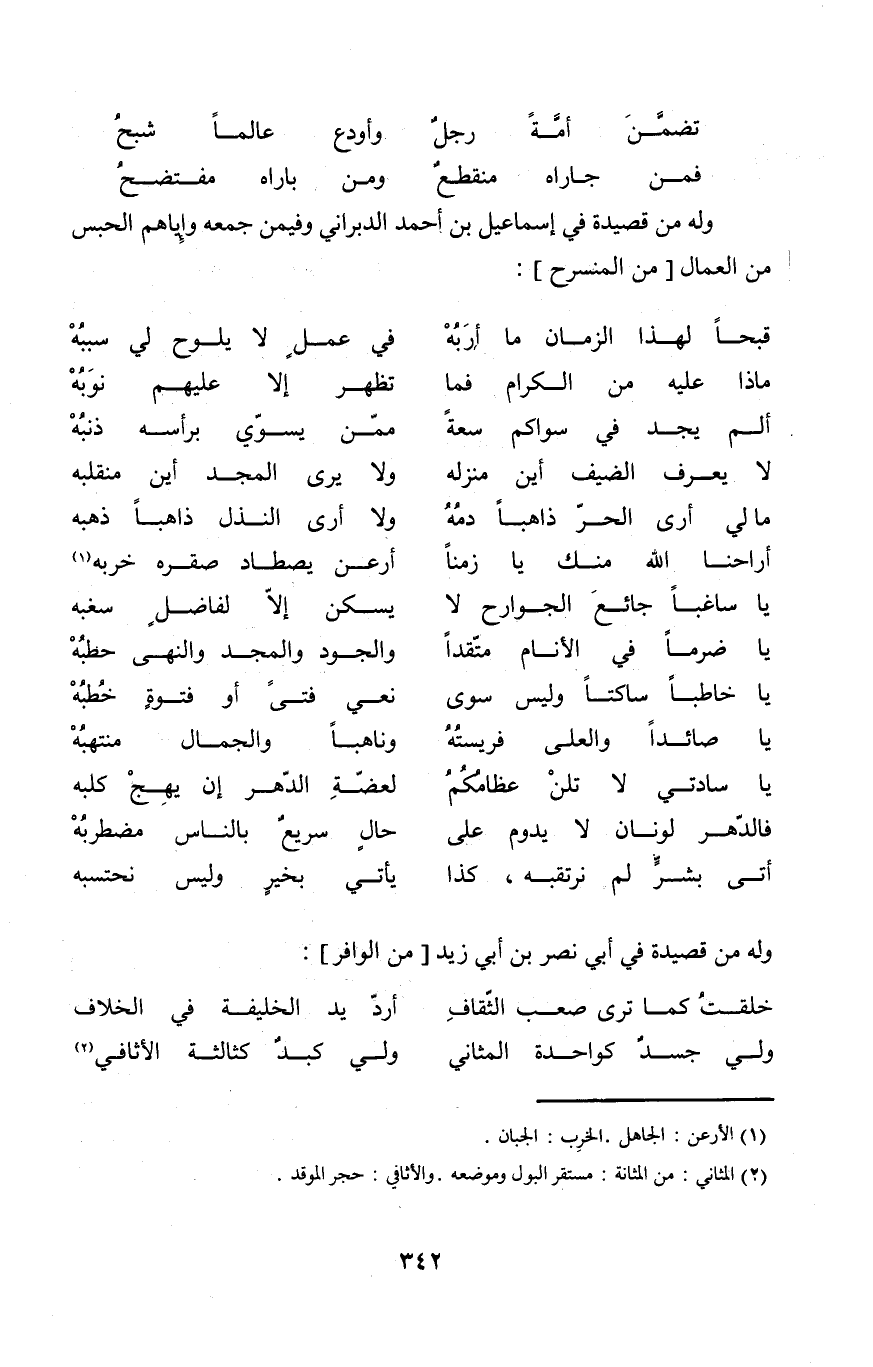 تضمَّنَ أمَّةً رجلٌ وأودع عالماً شبحُ
فمن جاراه منقطعٌ ومن باراه مفتضحُ
وله من قصيدة في إسماعيل بن أحمد الدبراني وفيمن جمعه وإياهم الحبس
من العمال [ من المنسرح ] :
قبحاً لهذا الزمان ما أرَبُهْ في عملٍ لا يلوح لي سببُهْ
ماذا عليه من الكرام فما تظهر إلا عليهم نوَبُهْ
ألم يجد في سواكم سعةً ممّن يسوّي برأسه ذنبُهْ
لا يعرف الضيف أين منزله ولا يرى المجد أين منقلبه
مالي أرى الحرّ ذاهباً دمُهُ ولا أرى النذل ذاهباً ذهبه
أراحنا الله منك يا زمناً أرعن يصطاد صقره خربه(١)
يا ساغباً جائعَ الجوارح لا يسكن إلاّ لفاضلٍ سغبه
يا ضرماً في الأنام متّقداً والجود والمجد والنهى حطبُهْ
يا خاطباً ساكتاً وليس سوى نعي فتىً أو فتوةٍ خُطبُهْ
يا صائداً والعلى فريستُهُ وناهباً والجمال منتهبُهْ
يا سادتي لا تلنْ عظامُكُمُ لعضّةِ الدّهر إن يهجْ كلبه
فالدّهر لونان لا يدوم على حالٍ سريعٌ بالناس مضطربُهْ
أتى بشرٍّ لم نرتقبه ، كذا يأتي بخيرٍ وليس نحتسبه
وله من قصيدة في أبي نصر بن أبي زيد [ من الوافر ] :
خلقتُ كما ترى صعب الثّقافِ أردّ يد الخليفة في الخلاف
ولي جسدٌ كواحدة المثاني ولي كبدٌ كثالثة الأثافي(٢)
(١) الأرعن : الجاهل . الخرِب : الجبان .
(٢) المثاني : من المثانة : مستقر البول وموضعه . والأثافي : حجر الموقد .
٣٤٢